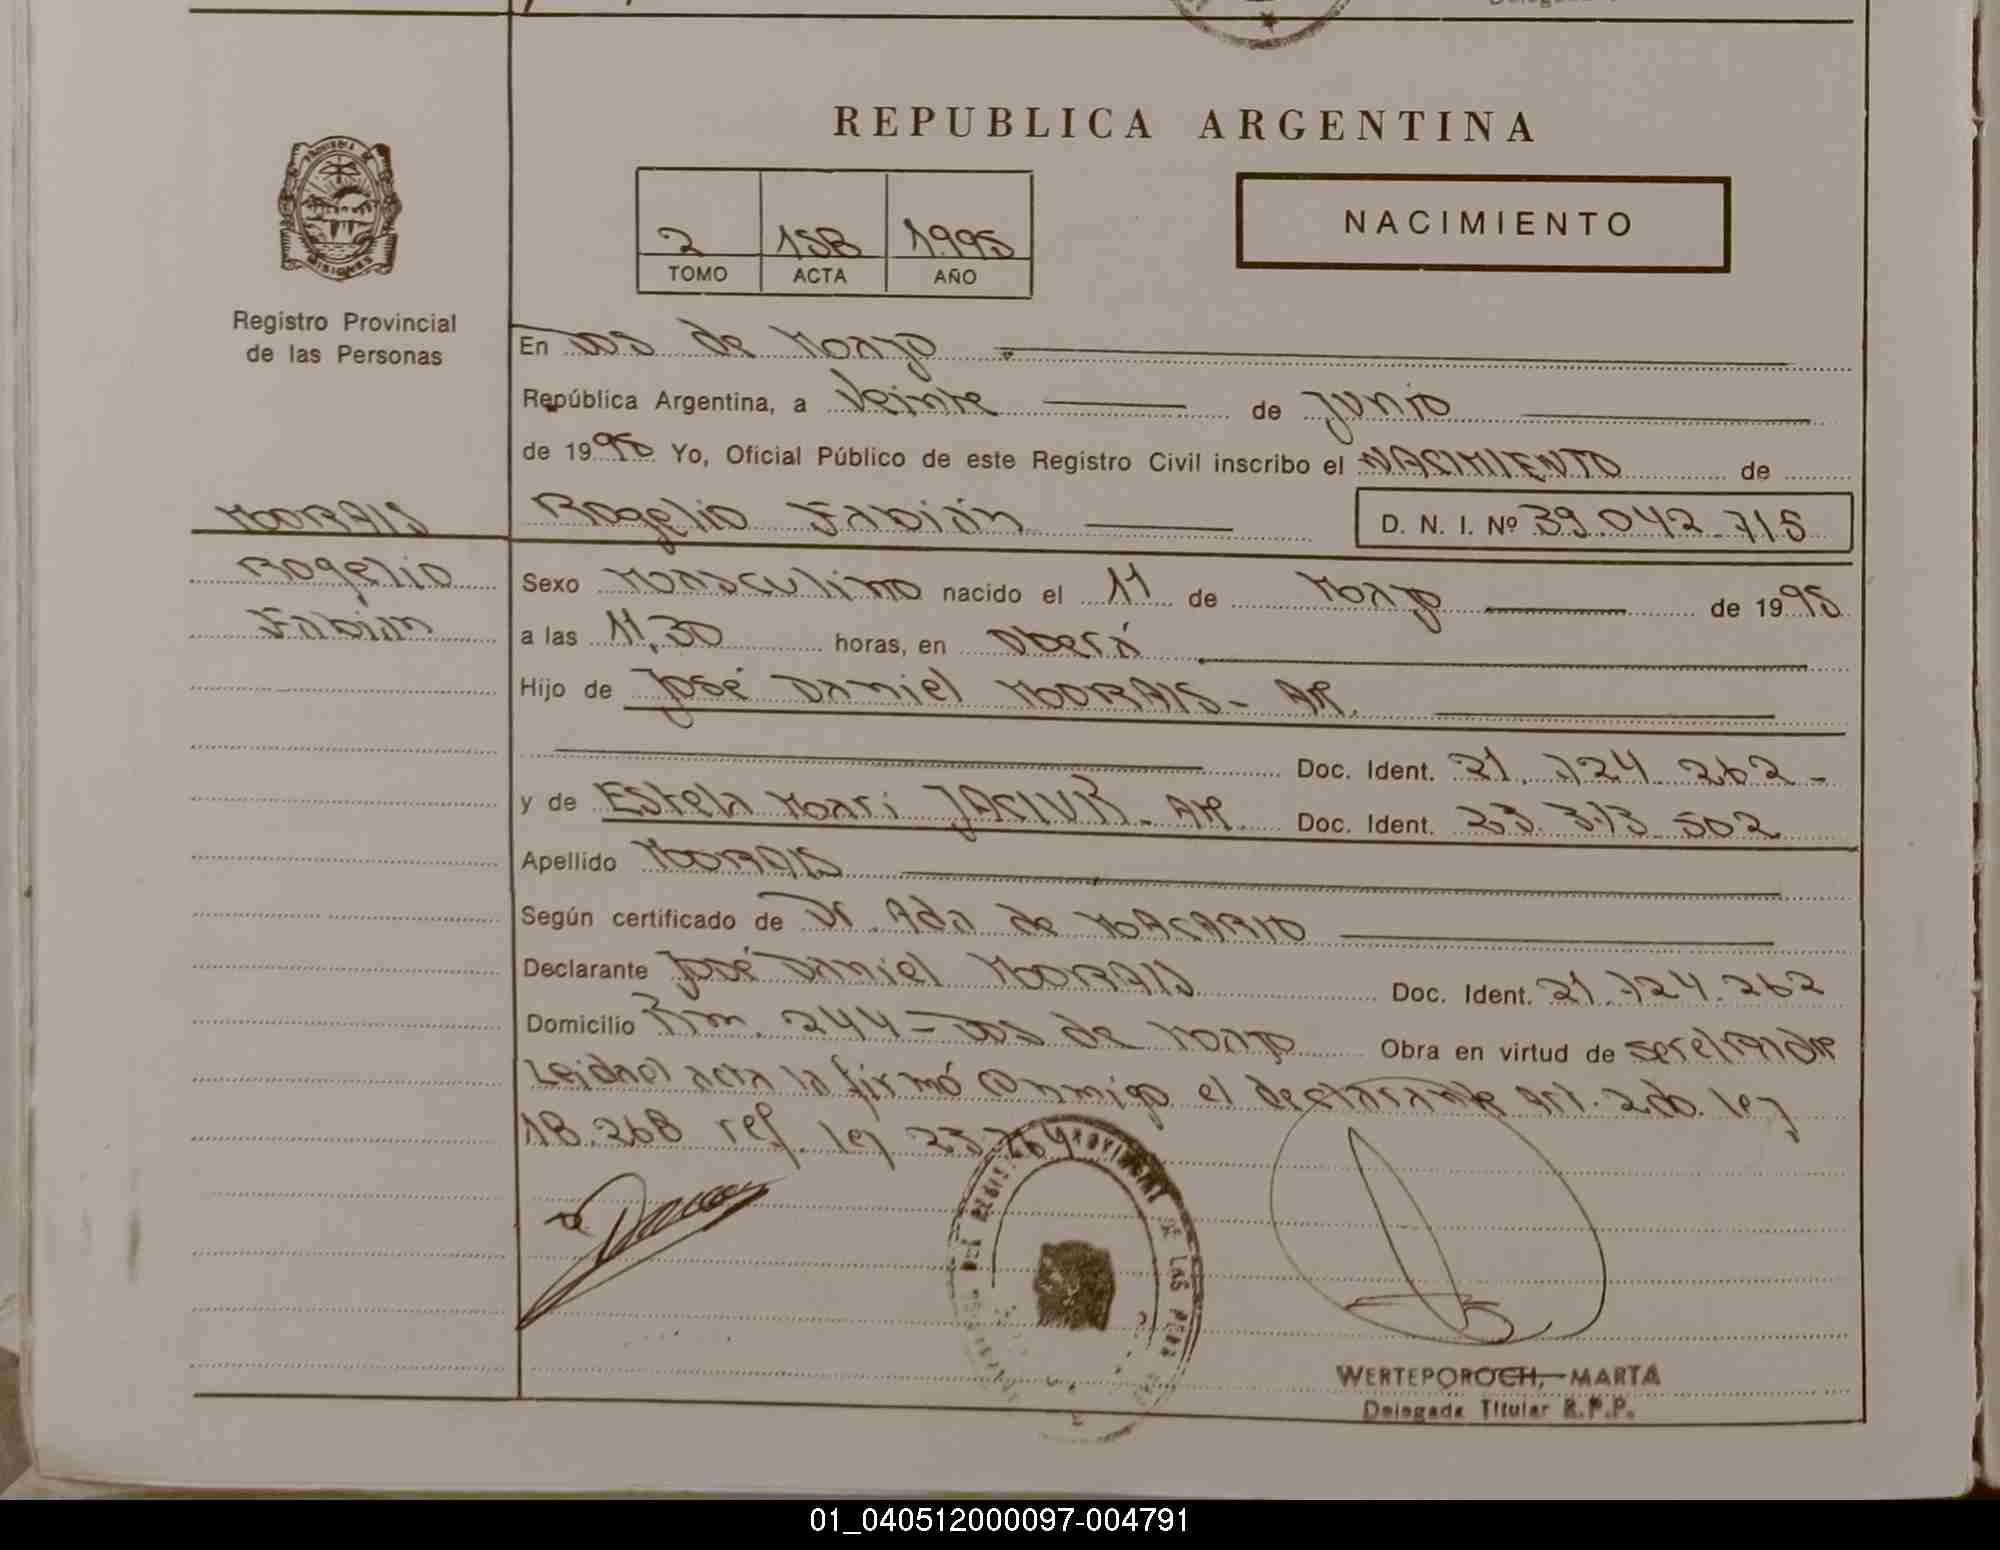 REPUBLICA ARGENTINA
PROVINCIA DE
MISIONES
2 158 1995
TOMO ACTA AÑO
NACIMIENTO
Registro Provincial
de las Personas
En Dos de Mayo
República Argentina, a Veinte de Junio
de 1995 Yo, Oficial Público de este Registro Civil inscribo el NACIMIENTO de
MORAIS
Rogelio Fabián D. N. I. Nº 39.042.715
Rogelio
Fabián
Sexo Masculino nacido el 11 de Mayo de 1995
a las 11,30 horas, en Oberá
Hijo de José Daniel MORAIS - AR.
Doc. Ident. 21.724.262 -
y de Estela Mari - AR. Doc. Ident. 23.373.502
Apellido MORAIS
Según certificado de Dr. Ada de MACARIO
Declarante José Daniel MORAIS Doc. Ident. 21.724.262
Domicilio Km. 244 - Dos de Mayo Obra en virtud de ser el padre
Leida el acta la firmó conmigo el declarante Art. 2do. ley
18.268 ref. ley 23.264
WERTEPOROCH, MARTA
Delegada Titular R.P.P.
01_040512000097-004791